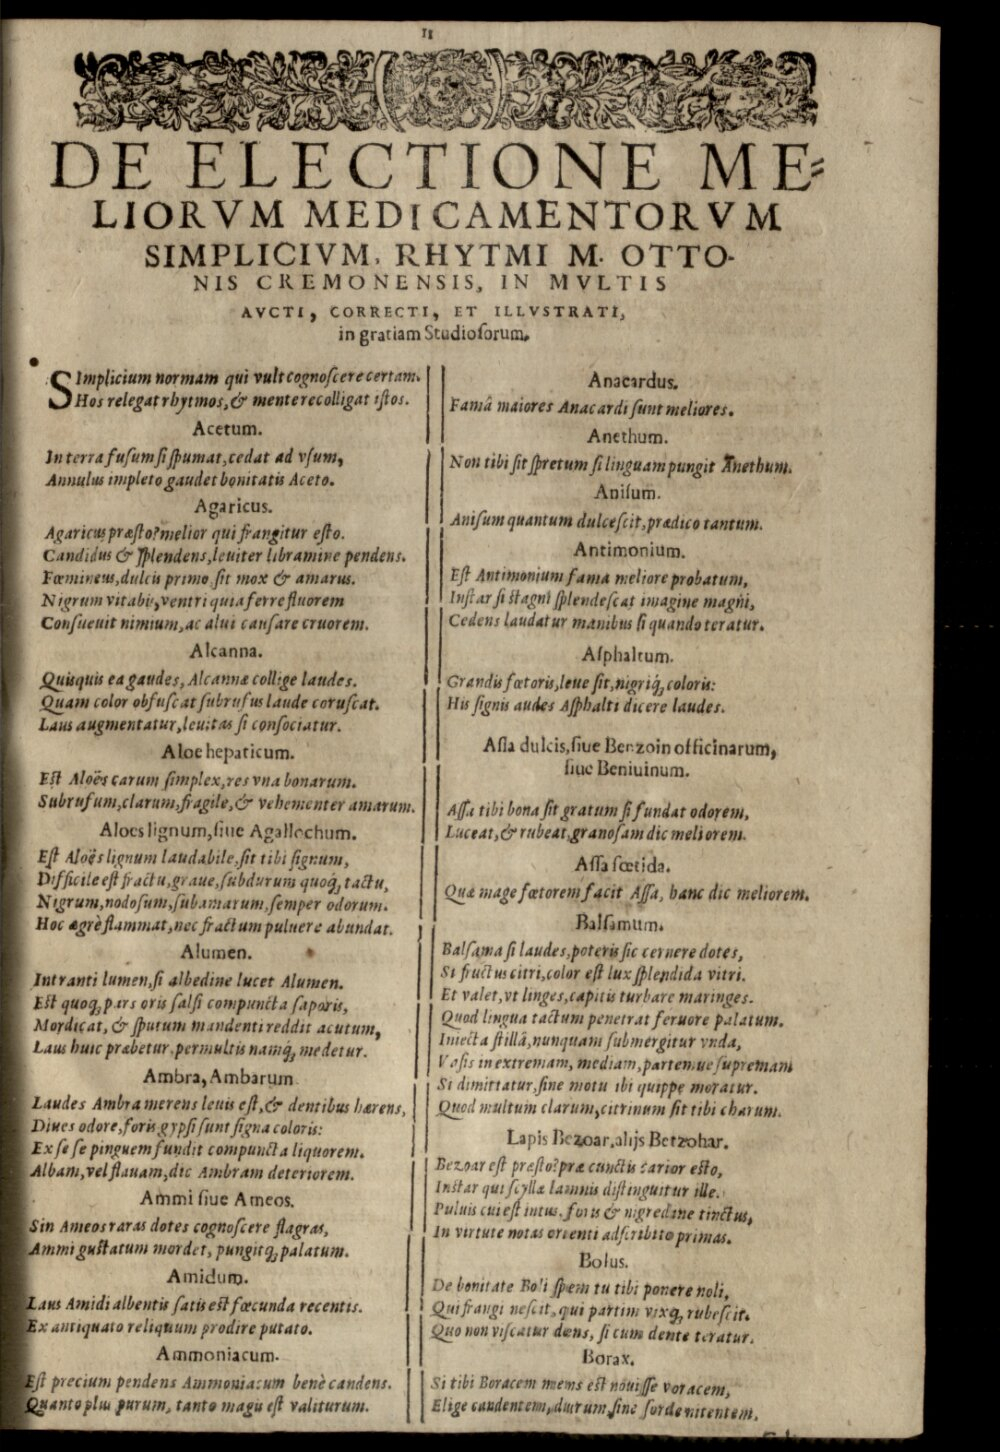 11
DE ELECTIONE ME⸗
LIORVM MEDICAMENTORVM
SIMPLICIVM, RHYTMI M. OTTO-
NIS CREMONENSIS, IN MVLTIS
AVCTI, CORRECTI, ET ILLVSTRATI,
in gratiam Studioſorum.
SImplicium normam qui vult cognoſcere certam.
Hos relegat rhytmos, & mente recolligat iſtos.
Acetum.
In terra fuſum ſi ſpumat, cedat ad vſum,
Annulus impleto gaudet bonitatis Aceto.
Agaricus.
Agaricus præſto? melior qui frangitur eſto.
Candidus & ſplendens, leuiter libramine pendens.
Fœmineus, dulcis primo ſit mox & amarus.
Nigrum vitabis, ventri quia ferre fluorem
Conſueuit nimium, ac alui cauſare cruorem.
Alcanna.
Quisquis ea gaudes, Alcannæ collige laudes.
Quam color obfuſcat ſubrufus laude coruſcat.
Laus augmentatur, leuitas ſi conſociatur.
Aloe hepaticum.
Eſt Aloës carum ſimplex, res vna bonarum.
Subrufum, clarum, fragile, & vehementer amarum.
Aloes lignum, ſiue Agallochum.
Eſt Aloës lignum laudabile, ſit tibi ſignum,
Difficile eſt fractu, graue, ſubdurum quoq́, tactu,
Nigrum, nodoſum, ſubamarum, ſemper odorum.
Hoc ægrè flammat, nec fractum puluere abundat.
Alumen.
Intranti lumen, ſi albedine lucet Alumen.
Eſt quoq́, pars oris ſalſi compuncta ſaporis,
Mordicat, & ſputum mandenti reddit acutum,
Laus huic præbetur, permultis namq́, medetur.
Ambra, Ambarum
Laudes Ambra merens leuis eſt, & dentibus hærens,
Diues odore, foris gypſi ſunt ſigna coloris:
Ex ſe ſe pinguem fundit compuncta liquorem.
Albam, vel flauam, dic Ambram deteriorem.
Ammi ſiue Ameos.
Sin Ameos raras dotes cognoſcere flagras,
Ammi guſtatum mordet, pungitq́, palatum.
Amidum.
Laus Amidi albentis ſatis eſt fœcunda recentis.
Ex antiquato reliquum prodire putato.
Ammoniacum.
Eſt precium pendens Ammoniacum benè candens.
Quanto plus purum, tanto magis eſt valiturum.
Anacardus.
Famâ maiores Anacardi ſunt meliores.
Anethum.
Non tibi ſit ſpretum ſi linguam pungit Anethum.
Aniſum.
Aniſum quantum dulceſcit, prædico tantum.
Antimonium.
Eſt Antimonium fama meliore probatum,
Inſtar ſi ſtagni ſplendeſcat imagine magni,
Cedens laudatur manibus ſi quando teratur.
Aſphaltum.
Grandis fœtoris, leue ſit, nigriq́, coloris:
His ſignis audes Aſphalti dicere laudes.
Aſſa dulcis, ſiue Benzoin officinarum,
ſiue Beniuinum.
Aſſa tibi bona ſit gratum ſi fundat odorem,
Luceat, & rubeat, granoſam dic meliorem.
Aſſa fœtida.
Quæ mage fœtorem facit Aſſa, hanc dic meliorem.
Balſamum.
Balſama ſi laudes, poteris ſic cernere dotes,
Si fructus citri, color eſt lux ſplendida vitri.
Et valet, vt linges, capitis turbare maringes.
Quod lingua tactum penetrat feruore palatum.
Iniecta ſtillâ, nunquam ſubmergitur vnda,
Vaſis in extremam, mediam, partemue ſupremam
Si dimittatur, ſine motu ibi quippe moratur.
Quod multum clarum, citrinum ſit tibi charum.
Lapis Bezoar, alijs Betzohar.
Bezoar eſt præſto? præ cunctis carior eſto,
Inſtar qui ſcyllæ lamnis diſtinguitur ille.
Puluis cui eſt intus, foris & nigredine tinctus,
In virtute notas orienti adſcribito primas.
Bolus.
De bonitate Boli ſpem tu tibi ponere noli,
Qui frangi neſcit, qui partim vixq́, rubeſcit.
Quo non viſcatur dens, ſi cum dente teratur.
Borax.
Si tibi Boracem mens eſt nouiſſe voracem,
Elige candentem, durum, ſine ſorde nitentem.